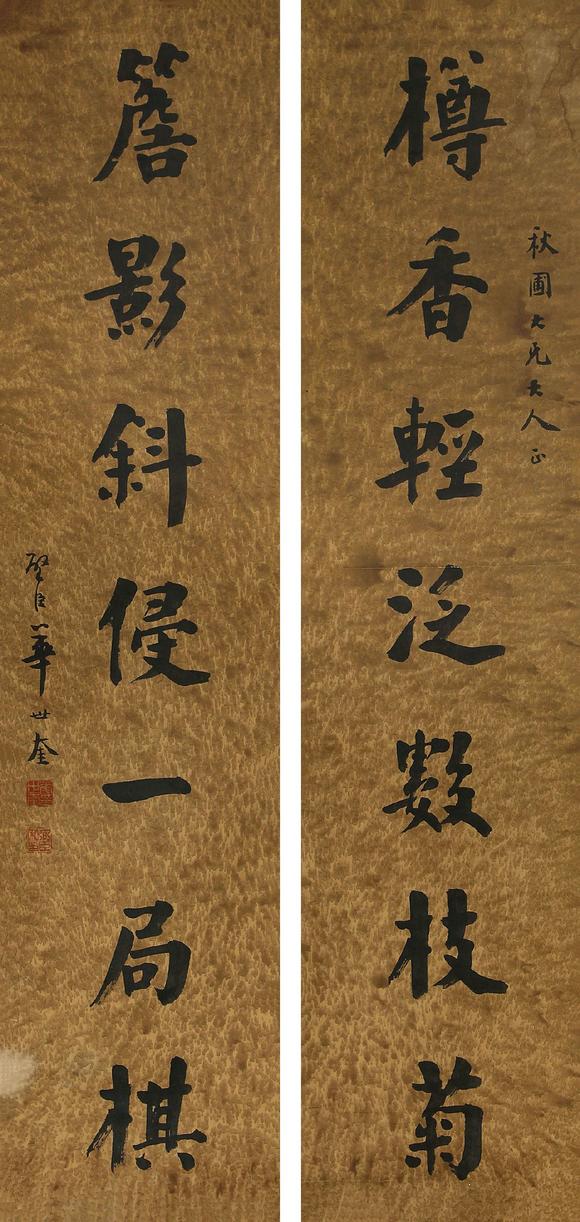 秋圃大兄大人正
樽香輕泛數枝菊
簷影斜侵一局棋
璧臣華世奎